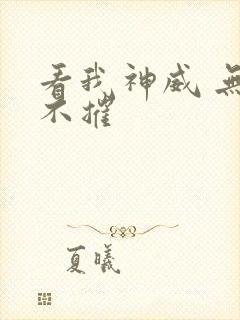 看我神威 無
不摧
夏曦